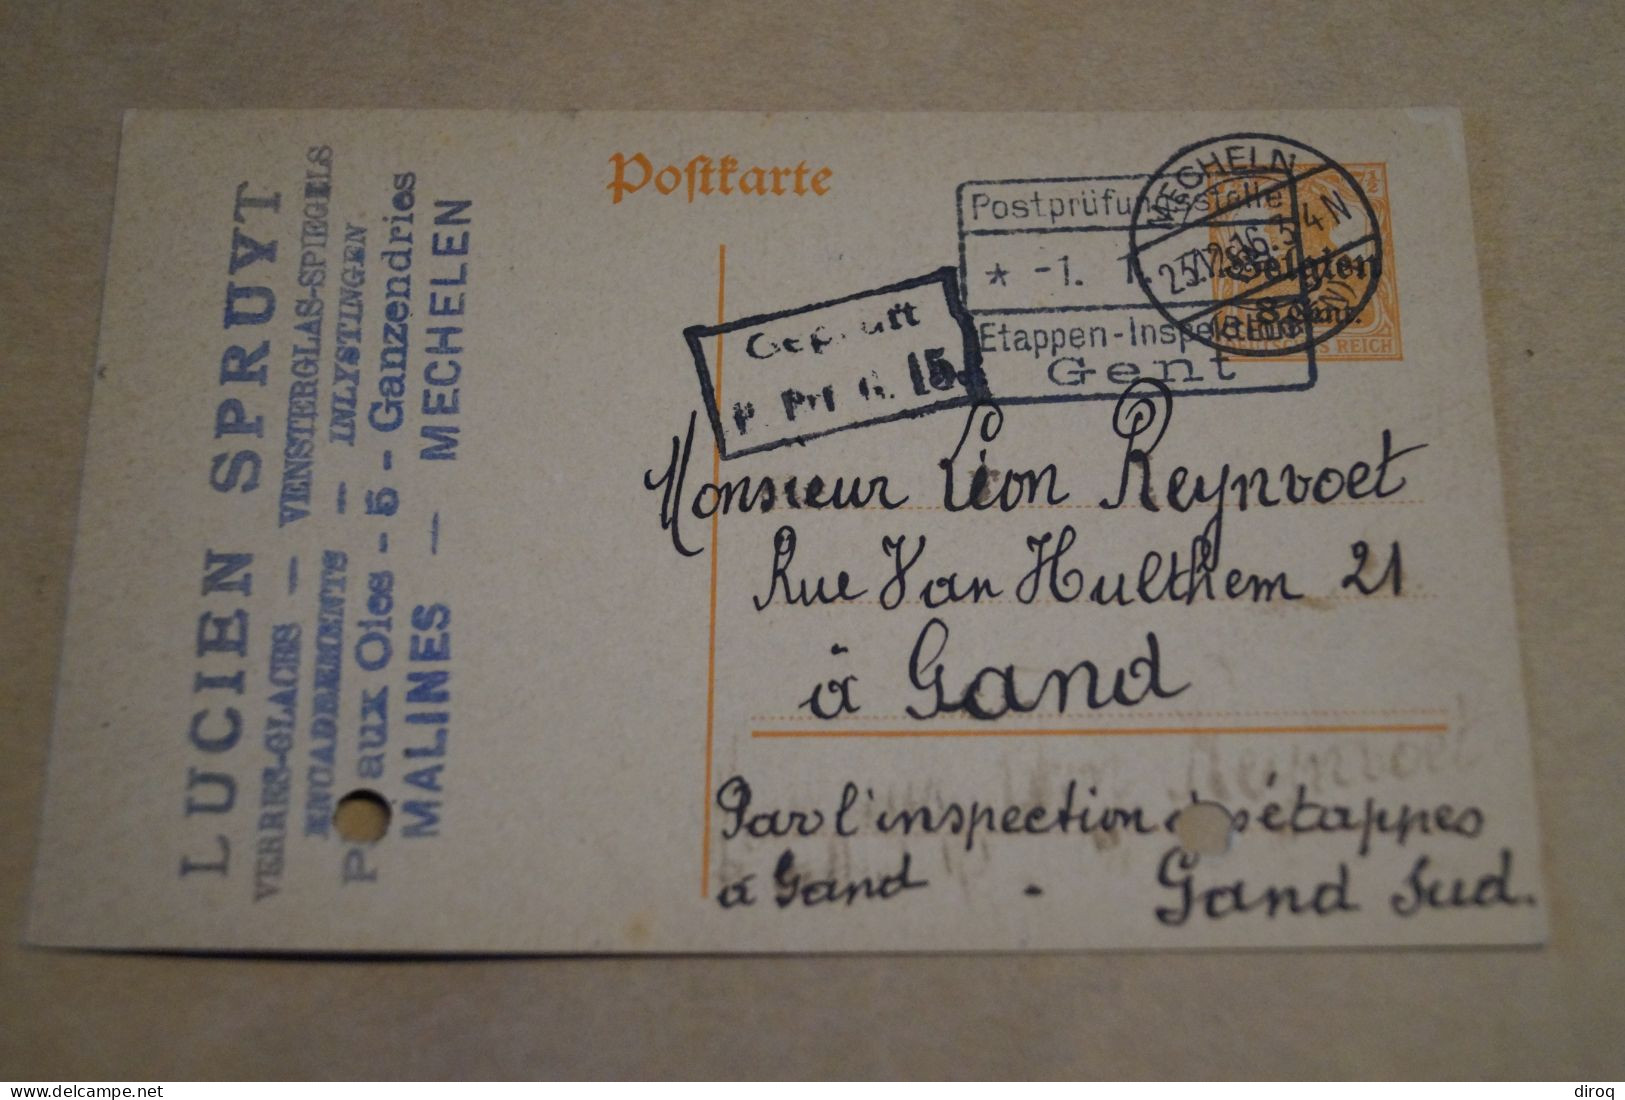 LUCIEN SPRUYT
VERRES-GLACES — VENSTERGLAS-SPIEGELS
ENCADREMENTS — INLYSTINGEN
aux Oies - 5 - Ganzendries
MALINES — MECHELEN
Postkarte
Postprüfungsstelle
* -1. 1.
Etappen-Inspektion
Gent
Geprüft
P. Prf G. 15.
MECHELN
(BELGIEN)
7½
Belgien
8 Cent.
DEUTSCHES REICH
Monsieur Léon Reynvoet
Rue Van Hulthem 21
à Gand
Par l'inspection étappes
à Gand - Gand Sud.
diroq